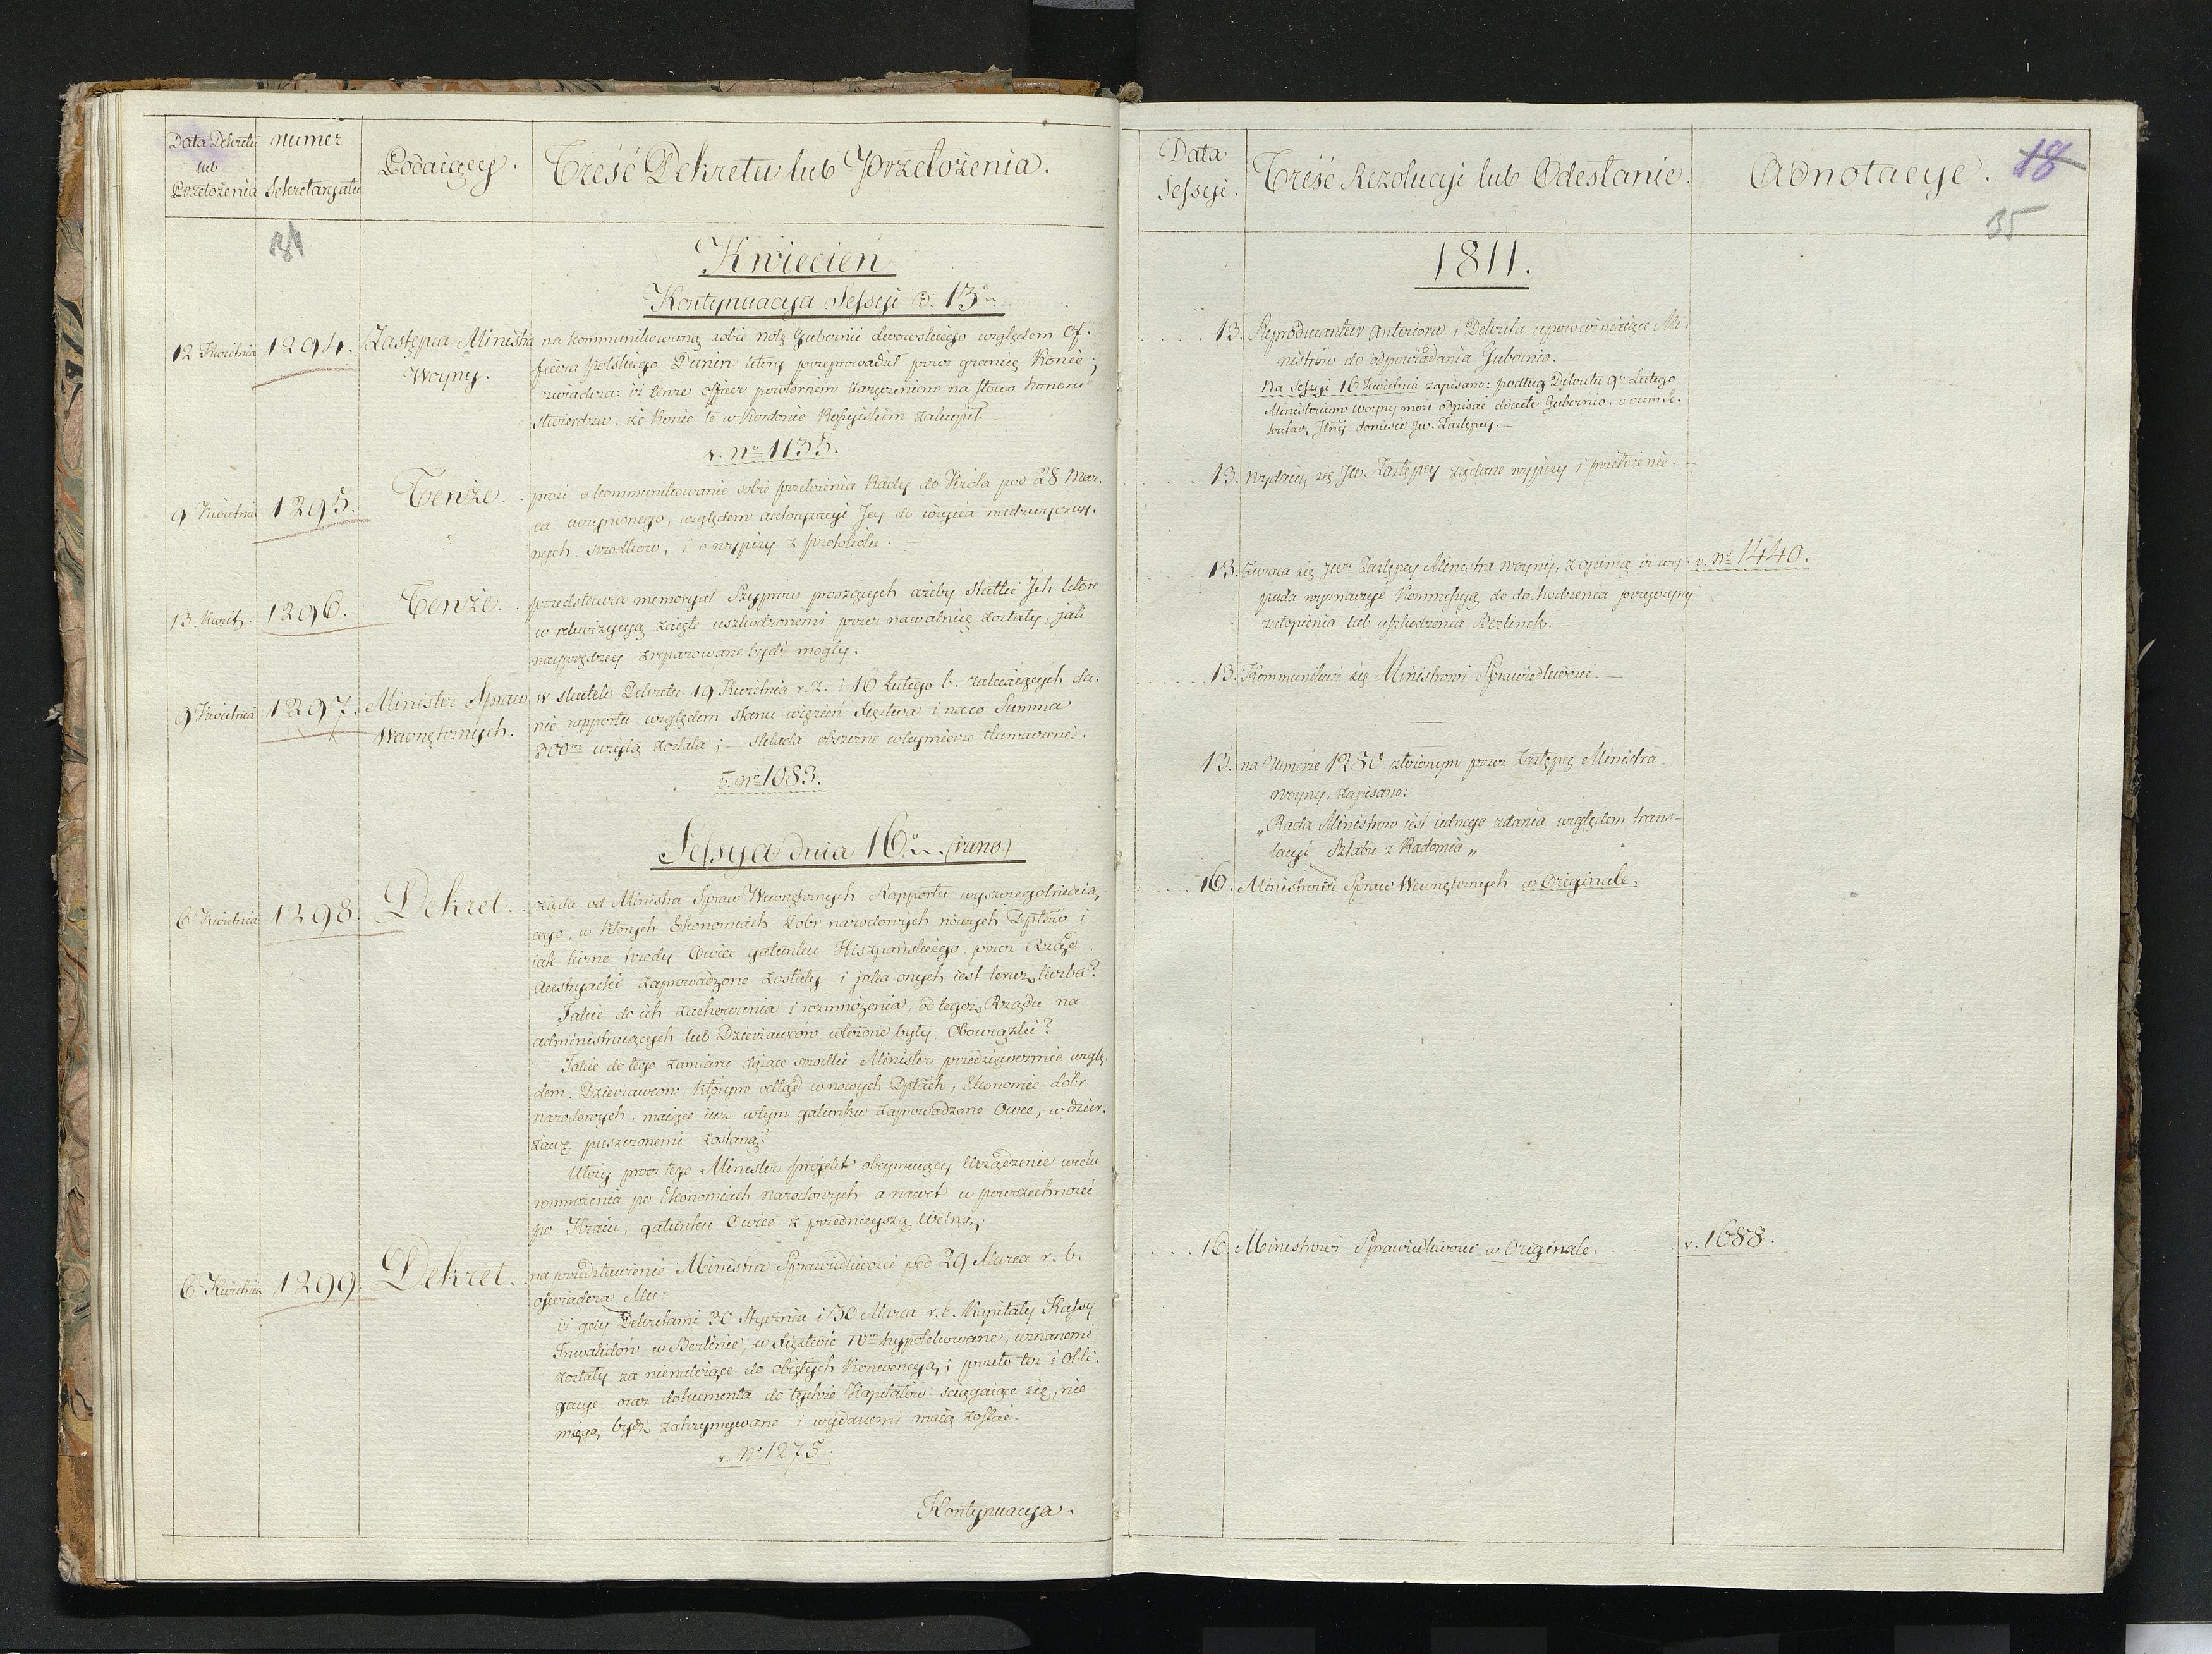 Data Dekretu
lub
Przełożenia
numer
Sekretaryatu
Podaiący.
Treść Dekretu lub Przełożenia.
34
Kwiecień
Kontynuacya Sessyi d. 13º
12 Kwietnia 1294. Zastępca Ministra
Woyny.
na kommunikowaną sobie notę Gubernii lwowskiego względem Of-
ficera polskiego Dunin który przeprowadził przez granicę Konie;
oświadcza: iż tenże officer powtórnem zaręczeniem na słowo honoru
stwierdza, że Konie te w Kordonie Rossyiskim zakupił. —
v. nº 1135.
9 Kwietnia 1295. Tenże.
prosi o kommunikowanie sobie przełożenia Rady do Króla pod 28 Mar-
ca uczynionego, względem autoryzacyi Jey do użycia nadzwyczay-
nych srodkow, i o wypisy z protokołu. —
13. Kwiet. 1296. Tenże.
przedstawia memoryał Szyprow proszących ażeby statki Jch które
w rekwizycyą zaięte uszkodzonemi przez nawalnicę zostały, jak
nayprędzey zreparowane bydź mogły.
9 Kwietnia 1297. Minister Spraw
Wewnętrznych.
W skutek Dekretu 19 Kwietnia r. z. i 16 Lutego b. zalecaiących da-
nie rapportu względem stanu więzień Xięztwa i na co Summa
300m użytą została; — składa obszerne w teymierze tłumaczenie.
v. nº 1083.
Sessya dnia 16º (rano)
6 Kwietnia 1298. Dekret.
żąda od Ministra Spraw Wewnętrznych Rapportu wyszczegolniaią-
cego, w których Ekonomiach Dobr narodowych nowych Dptów i
jak liczne trzody Owiec gatunku Hiszpańskiego przez Rząd
Austryacki zaprowadzone zostały i jaka onych iest teraz liczba?
Jakie do ich zachowania i rozmnożenia, od tegoz Rządu na
administruiących lub Dzierżawców włożone były Obowiązki?
Jakie do tego zamiaru dążące srodki Minister przedsięweźmie wzglę-
dem Dzierżawcow, którym odtąd w nowych Dptach, Ekonomie dóbr
narodowych, maiące iuż w tym gatunku zaprowadzone Owce, w dzier-
żawę puszczonemi zostaną?
Ułoży przez tego Minister projekt obeymuiący Urządzenie wedu
rozmnożenia po Ekonomiach narodowych a nawet w powszechności
po Kraiu, gatunku Owiec z przednieyszą Wełną.
6 Kwietnia 1299. Dekret.
na przedstawienie Ministra Sprawiedliwości pod 29 Marca r. b.
oświadcza Mu:
iż gdy Dekretami 30 Stycznia i 30 Marca r. b. Kapitały Kassy
Inwalidów w Berlinie, w Xięztwie Wm hypotekowane, uznanemi
zostały za nienależące do obiętych Konwencyą, i przeto też i Obli-
gacye oraz dokumenta do tychże Kapitałów sciągaiące się, nie
mogą bydź zatrzymywane i wydanemi maią zostać. —
v. Nº 1275.
Kontynuacya.
Data
Sessyi.
Treść Rezolucyi lub Odesłanie.
Adnotacye.
18
35
1811.
13. Reproducantur anteriora i Dekreta upoważniaiące Mi-
nistrów do odpowiadania Gubernio. —
Na Sessyi 16 Kwietnia zapisano: podług Dekretu 9º Lutego
Ministerium Woyny może odpisać directe Gubernio, o czem Se-
kretarz Jlny doniesie Jw. Zastępcy. —
13. Wydadzą się Jw. Zastępcy żądane wypisy i przełożenie. —
13. Zwraca się Jwu Zastępcy Ministra Woyny, z opinią iż wy-
pada wyznaczyć Kommissyą do dochodzenia przyczyny
zatopienia lub uszkodzenia Berlinek. —
v. Nº 1440.
13. Kommunikuie się Ministrowi Sprawiedliwości —
13. na Numerze 1280 złożonym przez Zastępcę Ministra
Woyny, zapisano:
„Rada Ministrow iest iednego zdania względem trans-
lacyi Sztabu z Radomia„
16. Ministrowi Spraw Wewnętrznych w Originale.
16. Ministrowi Sprawiedliwości w Originale.
v. 1688.